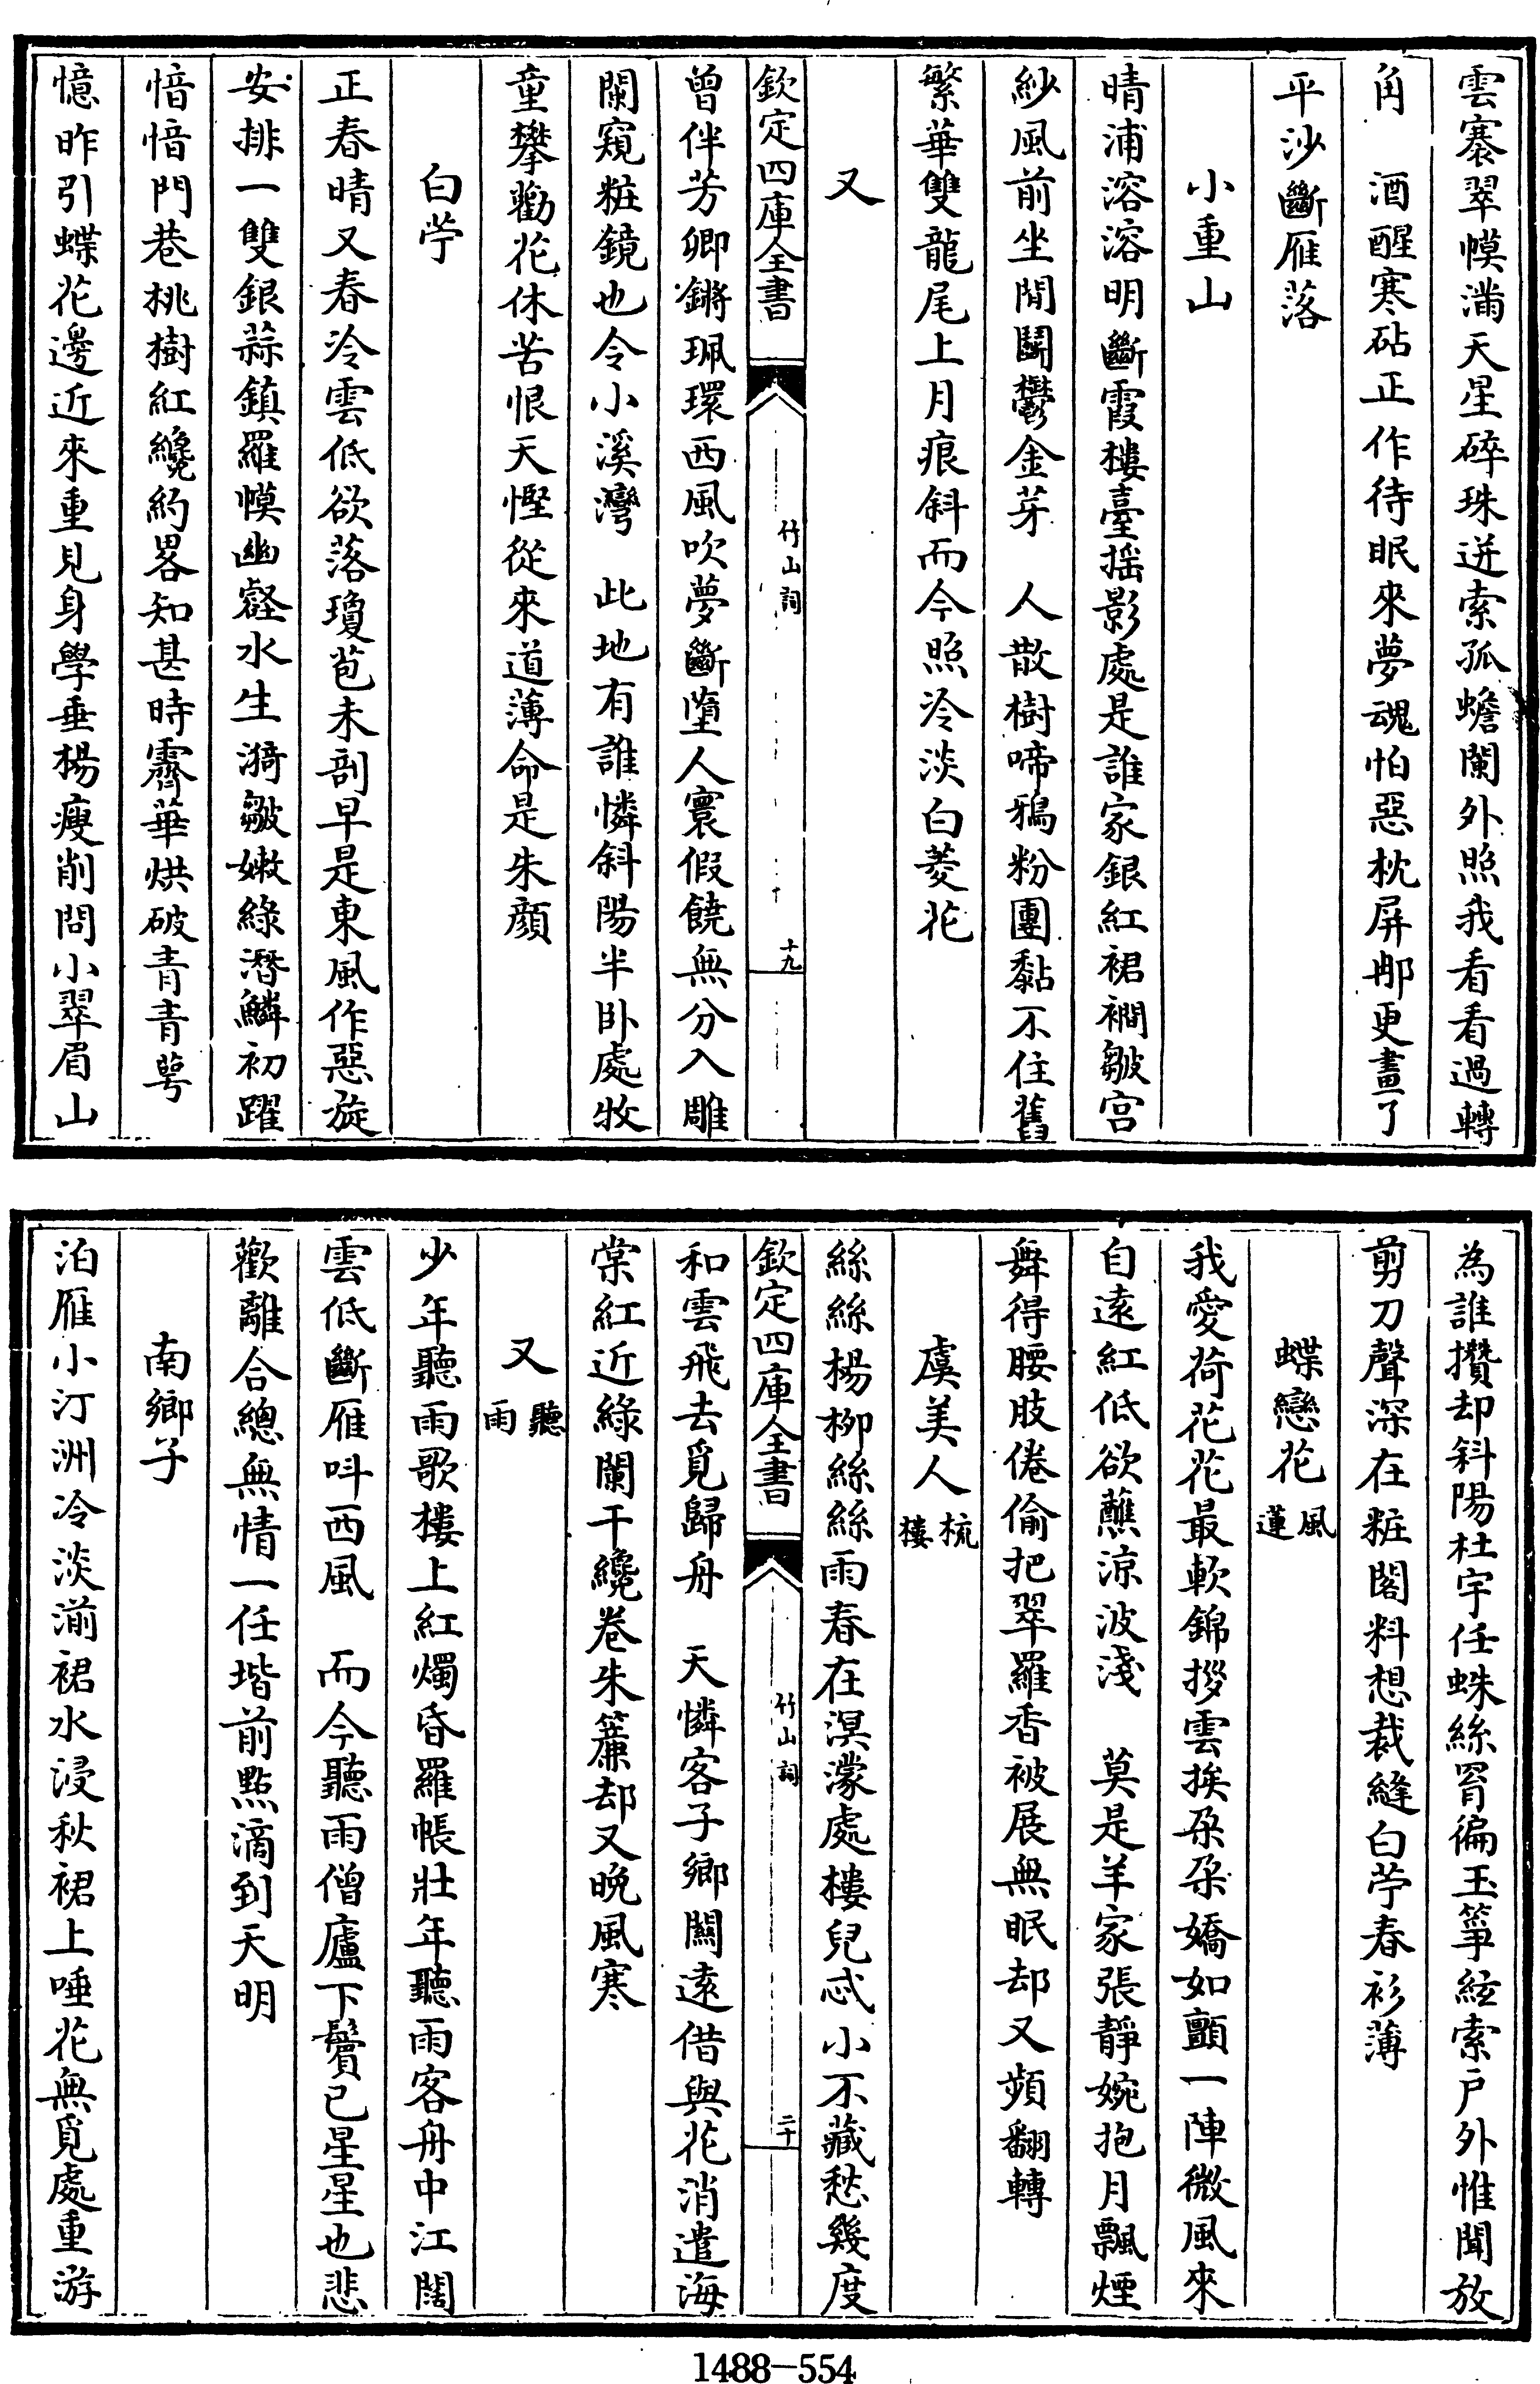 雲褰翠幙滿天星碎珠迸索孤蟾闌外照我看看過轉
角　酒醒寒砧正作待眠來夢魂怕惡枕屏那更畫了
平沙斷雁落
小重山
晴浦溶溶明斷霞樓臺揺影處是誰家銀紅裙襉皺宫
紗風前坐閒鬭鬱金芽　人散樹啼鴉粉團黏不住舊
繁華雙龍尾上月痕斜而今照泠淡白菱花
又
欽定四庫全書
竹山詞
十九
曾伴芳卿鏘珮環西風吹夢斷墮人寰假饒無分入雕
闌窺粧鏡也令小溪灣　此地有誰憐斜陽半卧處牧
童攀勸花休苦恨天慳從來道薄命是朱顔
白苧
正春晴又春泠雲低欲落瓊苞未剖早是東風作惡旋
安排一雙銀蒜鎮羅幙幽壑水生漪皺嫩緑潛鱗初躍
愔愔門巷桃樹紅纔約畧知甚時霽華烘破青青萼
憶昨引蝶花邊近來重見身學垂楊瘦削問小翠眉山
為誰攢却斜陽杜宇任蛛絲罥徧玉筝絃索户外惟聞放
剪刀聲深在粧閣料想裁縫白苧春衫薄
蝶戀花風蓮
我愛荷花花最軟錦拶雲挨朶朶嬌如顫一陣微風來
自遠紅低欲蘸涼波淺　莫是羊家張靜婉抱月飄煙
舞得腰肢倦偷把翠羅香被展無眠却又頻翻轉
虞美人梳樓
絲絲楊柳絲絲雨春在溟濛處樓兒忒小不藏愁幾度
欽定四庫全書
竹山詞
二十
和雲飛去覓歸舟　天憐客子鄉關遠借與花消遣海
棠紅近緑闌干纔卷朱簾却又晚風寒
又聽雨
少年聽雨歌樓上紅燭昏羅帳壯年聽雨客舟中江闊
雲低斷雁呌西風　而今聽雨僧廬下鬢已星星也悲
歡離合總無情一任堦前點滴到天明
南鄉子
泊雁小汀洲冷淡湔裙水浸秋裙上唾花無覓處重游
1488-554